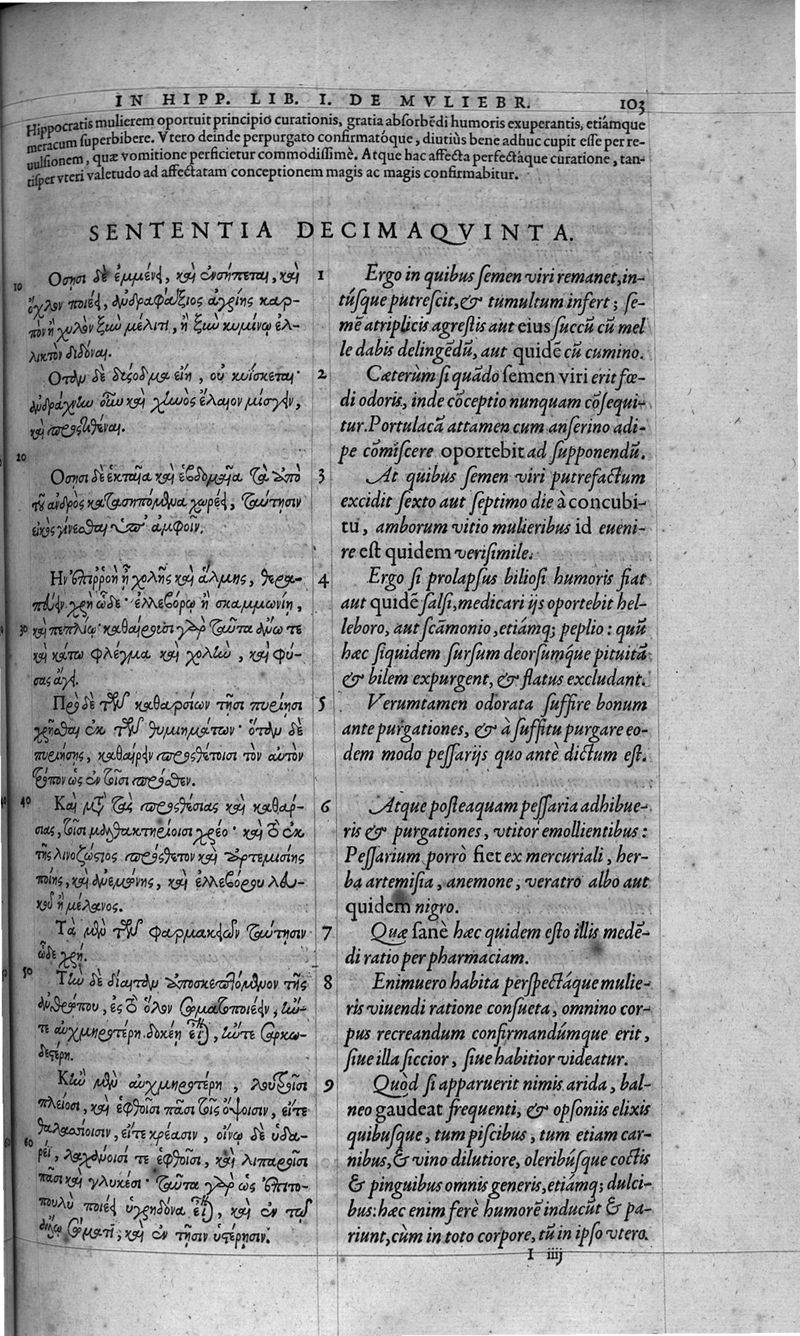 IN HIPP. LIB. I. DE MVLIEBR. 103
Hippocratis mulierem oportuit principio curationis, gratia absorbẽdi humoris exuperantis, etiámque
meracum superbibere. Vtero deinde perpurgato confirmatóque, diutiùs bene adhuc cupit esse per re-
uulsionem, quæ vomitione perficietur commodissimè. Atque hac affecta perfectáque curatione, tan-
tisper vteri valetudo ad affectatam conceptionem magis ac magis confirmabitur.
SENTENTIA DECIMAQVINTA.
10 Οσησι δὲ ἐμμένει, καὶ ἐνσήπεται, καὶ
ὄχλον ποιέει, ἀνδραφάξιος ἀγρίης καρ-
πὸν ἢ χυλὸν ξὺν μέλιτι, ἢ ξὺν κυμίνῳ ἐλ-
λικτὸν διδόναι.
Οταν δὲ δύσοδμα εἴη, οὐ κυΐσκεται·
ἀνδράχνην οὖν καὶ χηνὸς ἔλαιον μίσγειν,
καὶ προστιθέναι.
20 Οσησι δὲ ἑκταῖα καὶ ἑβδομαῖα τὰ ἀπὸ
τοῦ ἀνδρὸς κατασηπόμενα χωρέει, ταύτησιν
εἰκὸς γίνεσθαι ὑπ' ἀμφοῖν.
Ην ἐπιῤῥοὴ ἢ χολῆς καὶ ἅλμης, θερα-
πεύειν χρὴ ὧδε· ἐλλεβόρῳ ἢ σκαμμωνίῃ,
30 καὶ πεπλίῳ· καθαίρουσι γὰρ ταῦτα ἄνω τε
καὶ κάτω φλέγμα καὶ χολὴν, καὶ φύ-
σας ἄγει.
Πρὸ δὲ τῶν καθαρσίων τῆσι πυρίησι
χρῆσθαι ἐκ τῶν θυμιημάτων· ὅταν δὲ
πυριήσῃς, καθαίρειν προσθέτοισι τὸν αὐτὸν
τρόπον ὡς ἐν τοῖσι πρόσθεν.
40 Καὶ μετὰ τὰς προσθεσίας καὶ καθαρ-
σιας, τοῖσι μαλθακτηρίοισι χρέο· καὶ τὸ ἐκ
τῆς λινοζώστιος πρόσθετον καὶ ἀρτεμισίης
ποίης, καὶ ἀνεμώνης, καὶ ἐλλεβόρου λευ-
κοῦ ἢ μέλανος.
Τὰ μὲν τῶν φαρμακειῶν ταύτησιν
ὧδε χρή.
50 Τὴν δὲ δίαιταν ἀποσκεπτόμενον τῆς
ἀνθρώπου, ἐς τὸ ὅλον σωματοποιέειν, ἤν-
τε αὐχμηροτέρη δοκέη εἶναι, ἤντε σαρκω-
δεστέρη.
Κἢν μὲν αὐχμηροτέρη, λουτροῖσι
πλείοσι, καὶ ἑφθοῖσι πᾶσι τοῖς ὄψοισιν, εἴτε
θαλασσίοισιν, εἴτε κρέασιν, οἴνῳ δὲ ὑδα-
60 ρεῖ, λαχάνοισί τε ἑφθοῖσι, καὶ λιπαροῖσι
πᾶσι καὶ γλυκέσι· ταῦτα γὰρ ὡς ἐπιτο-
πουλὺ ποιέει ὑγρηδόνα εἶναι, καὶ ἐν τῷ
ἄλλῳ σώματι, καὶ ἐν τῆσιν ὑστέρησιν.
1 Ergo in quibus semen viri remanet, in-
túsque putrescit, & tumultum infert; se-
mẽ atriplicis agrestis aut eius succũ cũ mel
le dabis delingẽdũ, aut quidẽ cũ cumino.
2 Cæterùm si quãdo semen viri erit fœ-
di odoris, inde cõceptio nunquam cõsequi-
tur. Portulacã attamen cum anserino adi-
pe cõmiscere oportebit ad supponendũ.
3 At quibus semen viri putrefactum
excidit sexto aut septimo die à concubi-
tu, amborum vitio mulieribus id eueni-
re est quidem verisimile.
4 Ergo si prolapsus biliosi humoris fiat
aut quidẽ salsi, medicari ijs oportebit hel-
leboro, aut scãmonio, etiámq; peplio: quũ
hæc siquidem sursum deorsumque pituitã
& bilem expurgent, & flatus excludant.
5 Verumtamen odorata suffire bonum
ante purgationes, & à suffitu purgare eo-
dem modo pessarijs quo antè dictum est.
6 Atque posteaquam pessaria adhibue-
ris & purgationes, vtitor emollientibus:
Pessarium porrò fiet ex mercuriali, her-
ba artemisia, anemone, veratro albo aut
quidem nigro.
7 Quæ sanè hæc quidem esto illis medẽ-
di ratio per pharmaciam.
8 Enimuero habita perspectáque mulie-
ris viuendi ratione consueta, omnino cor-
pus recreandum confirmandúmque erit,
siue illa siccior, siue habitior videatur.
9 Quòd si apparuerit nimis arida, bal-
neo gaudeat frequenti, & opsoniis elixis
quibusque, tum piscibus, tum etiam car-
nibus, & vino dilutiore, oleribúsque coctis
& pinguibus omnis generis, etiámq; dulci-
bus: hæc enim ferè humorẽ inducũt & pa-
riunt, cùm in toto corpore, tũ in ipso vtero.
I iiij